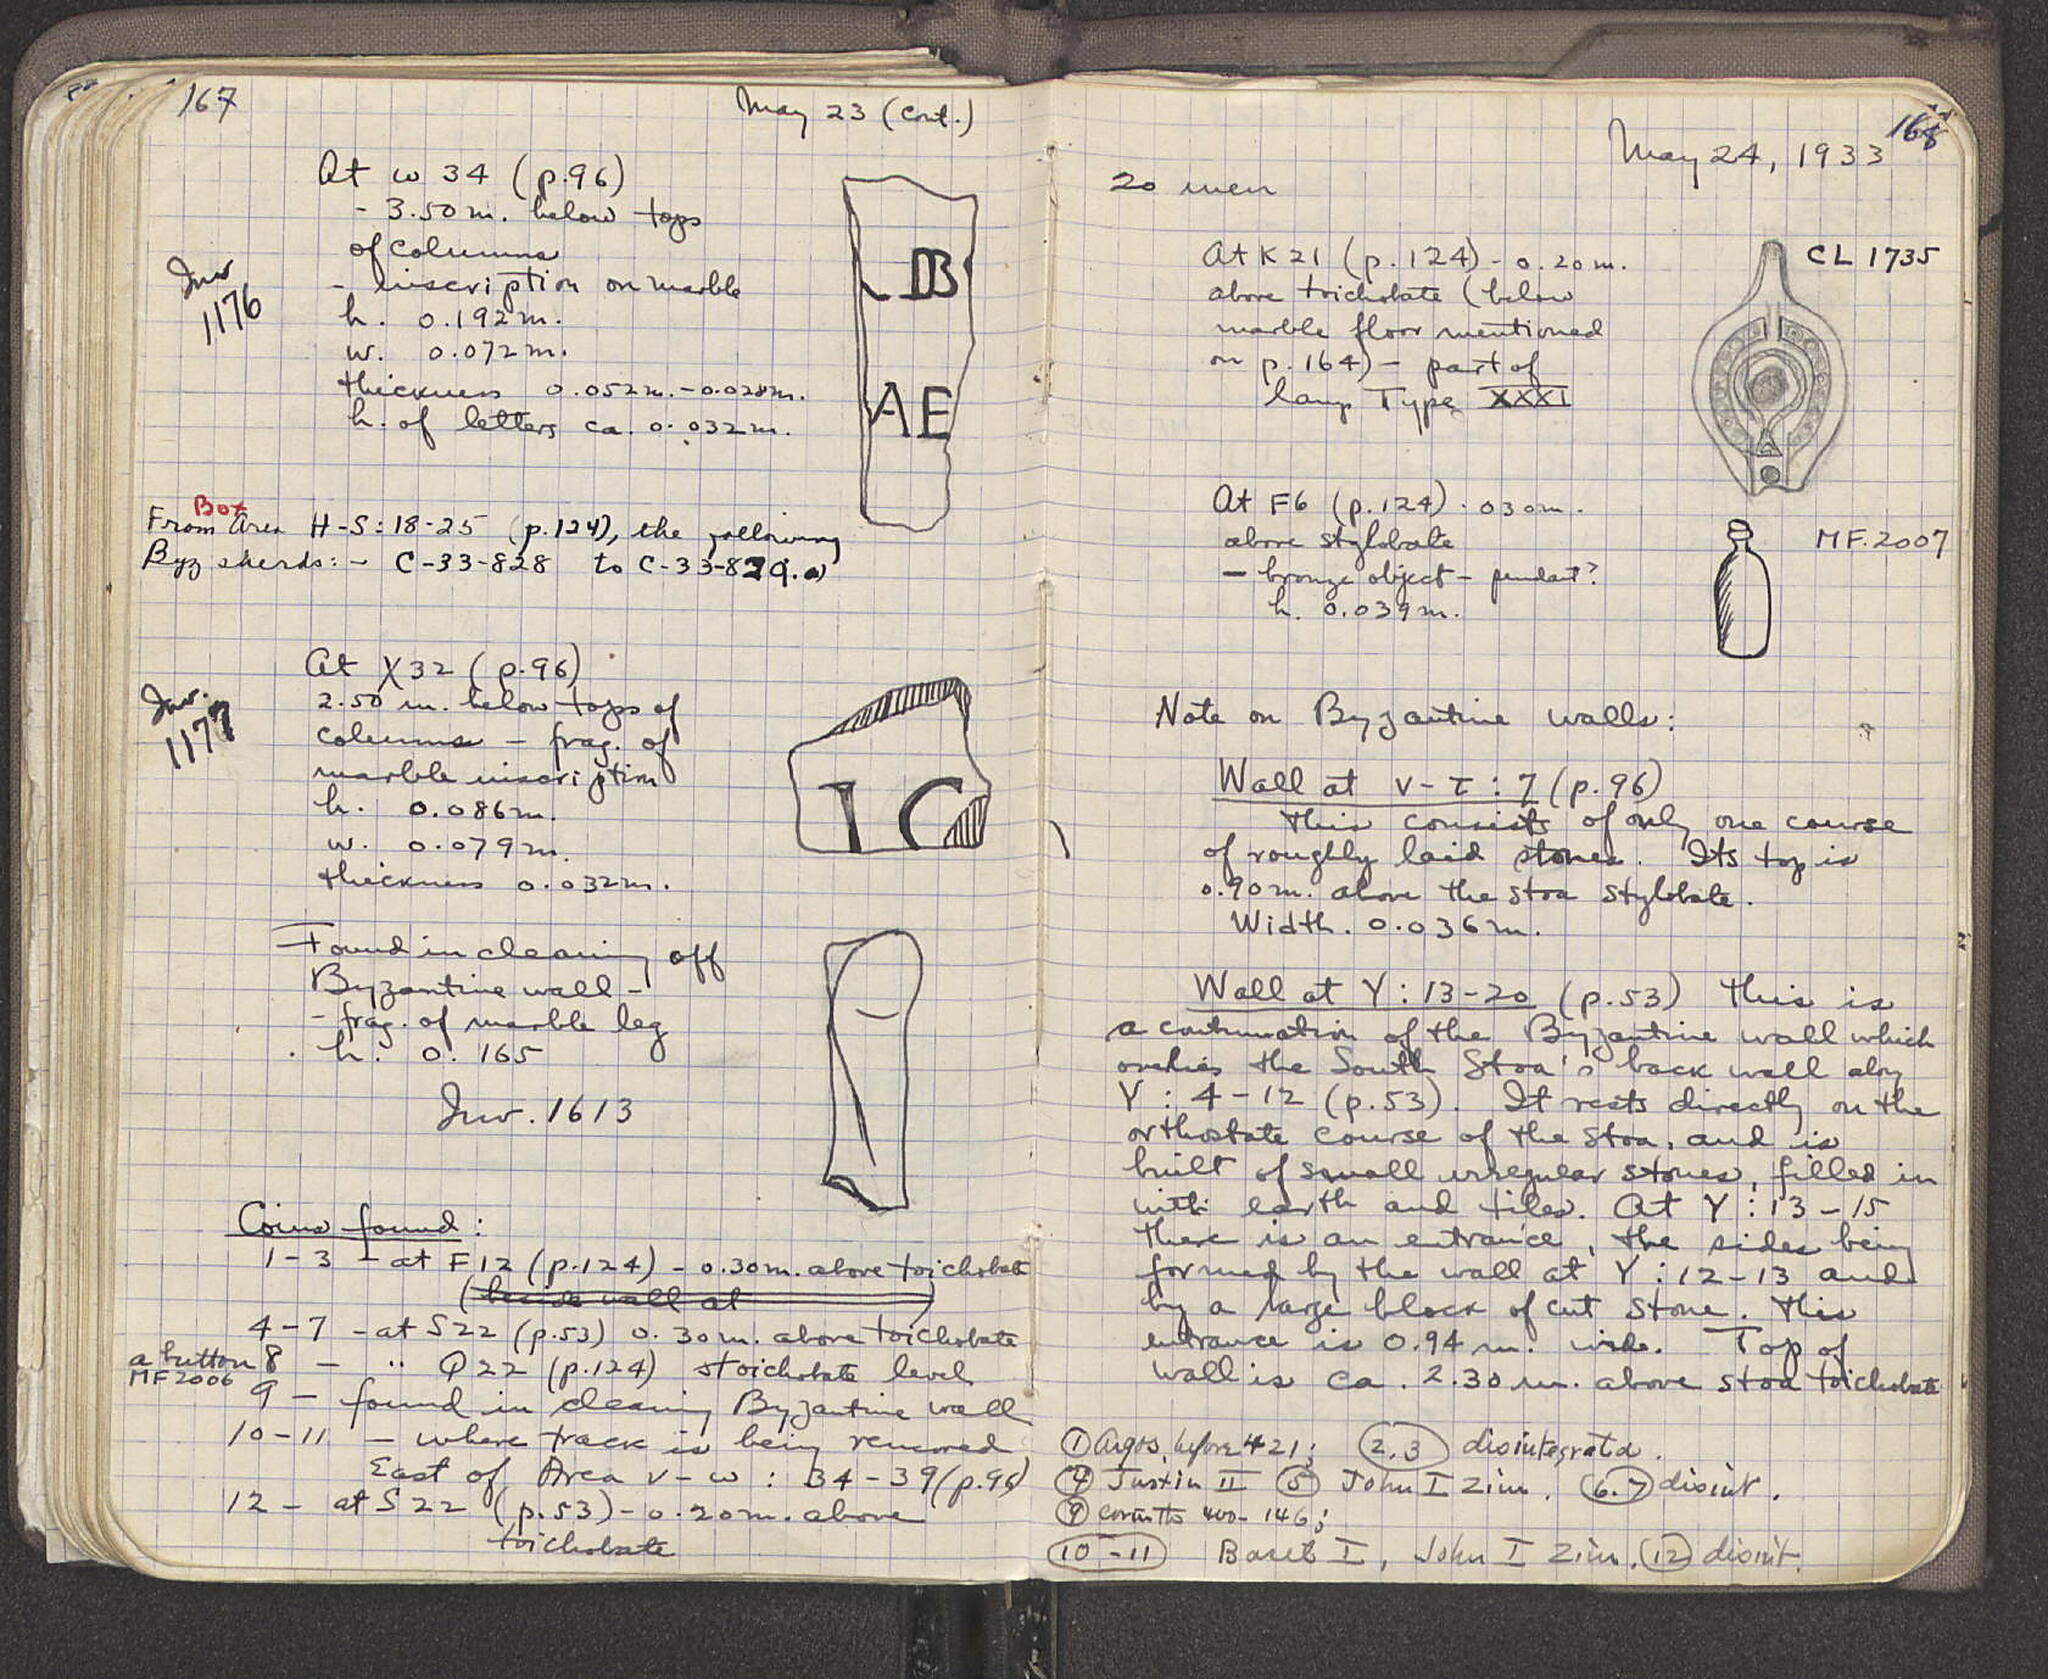 167
May 23 (cont.)
At w 34 (p.96)
- 3.50 m. below tops
of columns
- inscription on marble
h. 0.192 m.
w. 0.072 m.
thickness 0.052 m. - 0.028 m.
h. of letters ca. 0.032 m.
Inv
1176
B
AE
Box
From Area H-S: 18-25 (p.124), the following
Byz sherds: - C-33-828 to C-33-829.a)
At X32 (p.96)
2.50 m. below tops of
columns - frag. of
marble inscription
h. 0.086 m.
w. 0.079 m.
thickness 0.032 m.
Inv.
1177
I C
Found in cleaning off
Byzantine wall -
- frag. of marble leg
h. 0.165
Inv. 1613
Coins found:
1-3 - at F12 (p.124) - 0.30 m. above toichobate
(beside wall at )
4-7 - at S22 (p.53) 0.30 m. above toichobate
a button 8 - " Q22 (p.124) stoichobate level
MF 2006
9 - found in cleaning Byzantine wall
10-11 - where track is being removed
East of Area v-w : 34-39 (p.96)
12 - at S22 (p.53) - 0.20 m. above
toichobate
168
May 24, 1933
20 men
At K21 (p.124) - 0.20 m.
above toichobate (below
marble floor mentioned
on p.164) - part of
lamp Type XXXI
CL 1735
At F6 (p.124) . 030 m.
above stylobate
- bronze object - pendant?
h. 0.039 m.
MF.2007
Note on Byzantine walls:
Wall at v-τ : 7 (p.96)
This consists of only one course
of roughly laid stones. Its top is
0.90 m. above the stoa stylobate.
Width. 0.036 m.
Wall at Y: 13-20 (p.53) This is
a continuation of the Byzantine wall which
overlies the South Stoa's back wall along
Y : 4-12 (p.53). It rests directly on the
orthostate course of the stoa, and is
built of small irregular stones, filled in
with earth and tiles. At Y : 13-15
there is an entrance, the sides being
formed by the wall at Y : 12-13 and
by a large block of cut stone. This
entrance is 0.94 m. wide. Top of
wall is ca. 2.30 m. above stoa toichobate
1 Argos, before 421; 2.3 disintegrated.
4 Justin II 5 John I Zim. 6.7 disint.
9 Corinth 400-146;
10-11 Basil I, John I Zim. 12 disint.